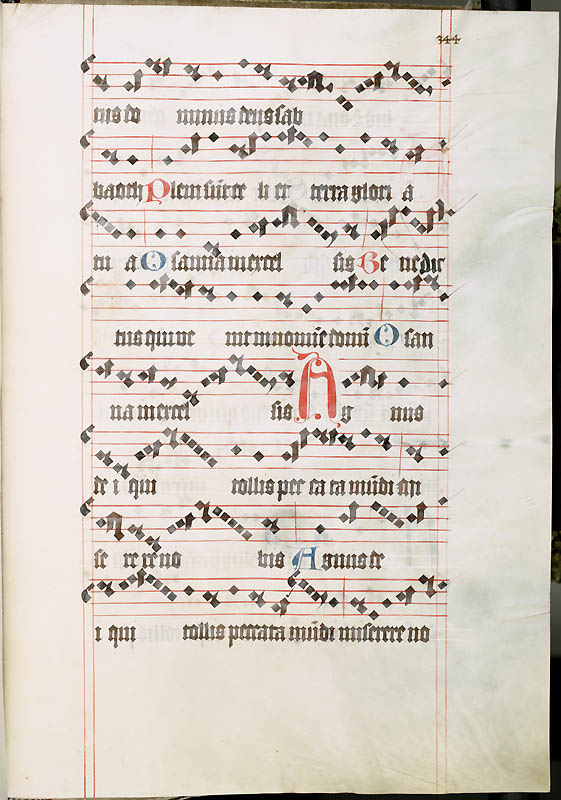 344
nus do minus deus sab
baoth Pleni sūt ce li et terra glori a
tu a O sanna in excel sis Be ne dic
tus qui ve nit in nomīe domī O san
na in excel sis A g nus
de i qui tollis pec ca ta mūdi mi
se re re no bis A gnus de
i qui tollis peccata mūdi miserere no